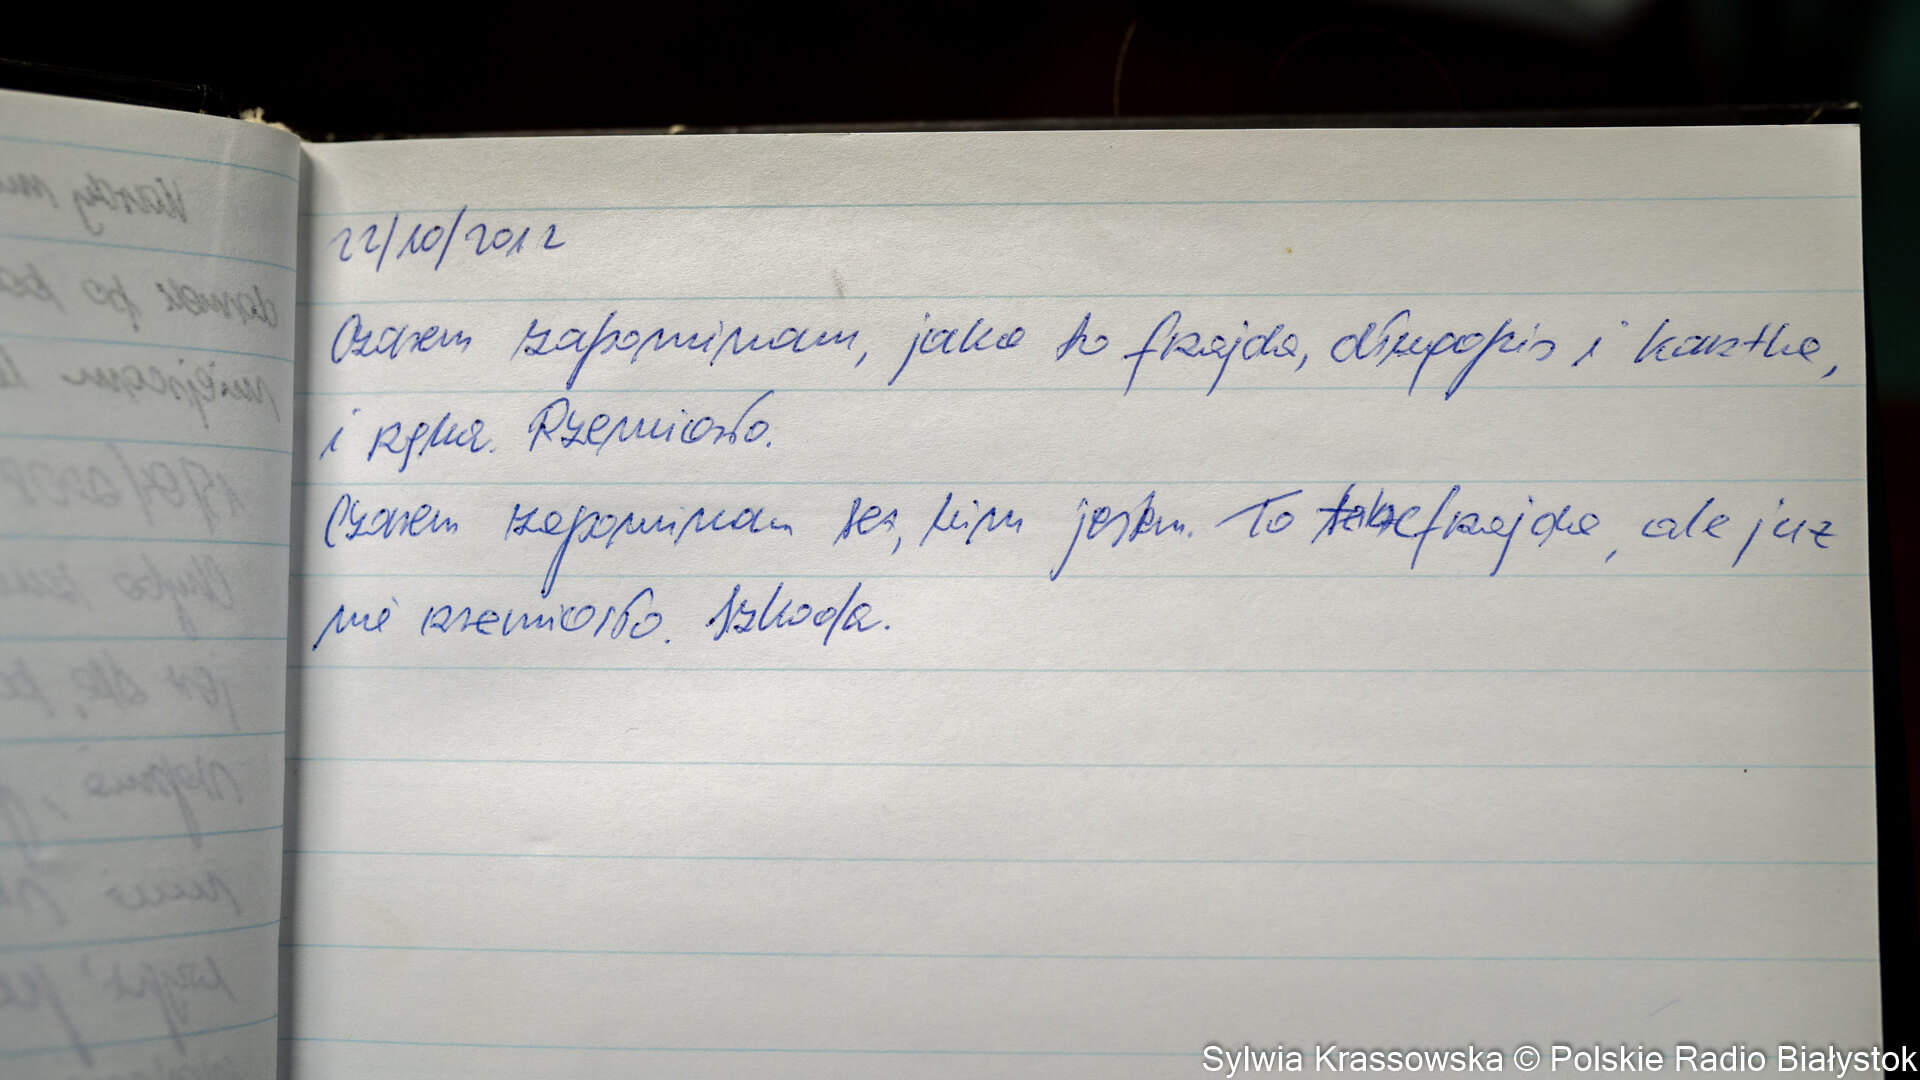 22/10/2012
Czasem zapominam, jaka to frajda, długopis i kartka,
i ręka. Rzemiosło.
Czasem zapominam też, kim jestem. To także frajda, ale już
nie rzemiosło. Szkoda.
Sylwia Krassowska © Polskie Radio Białystok